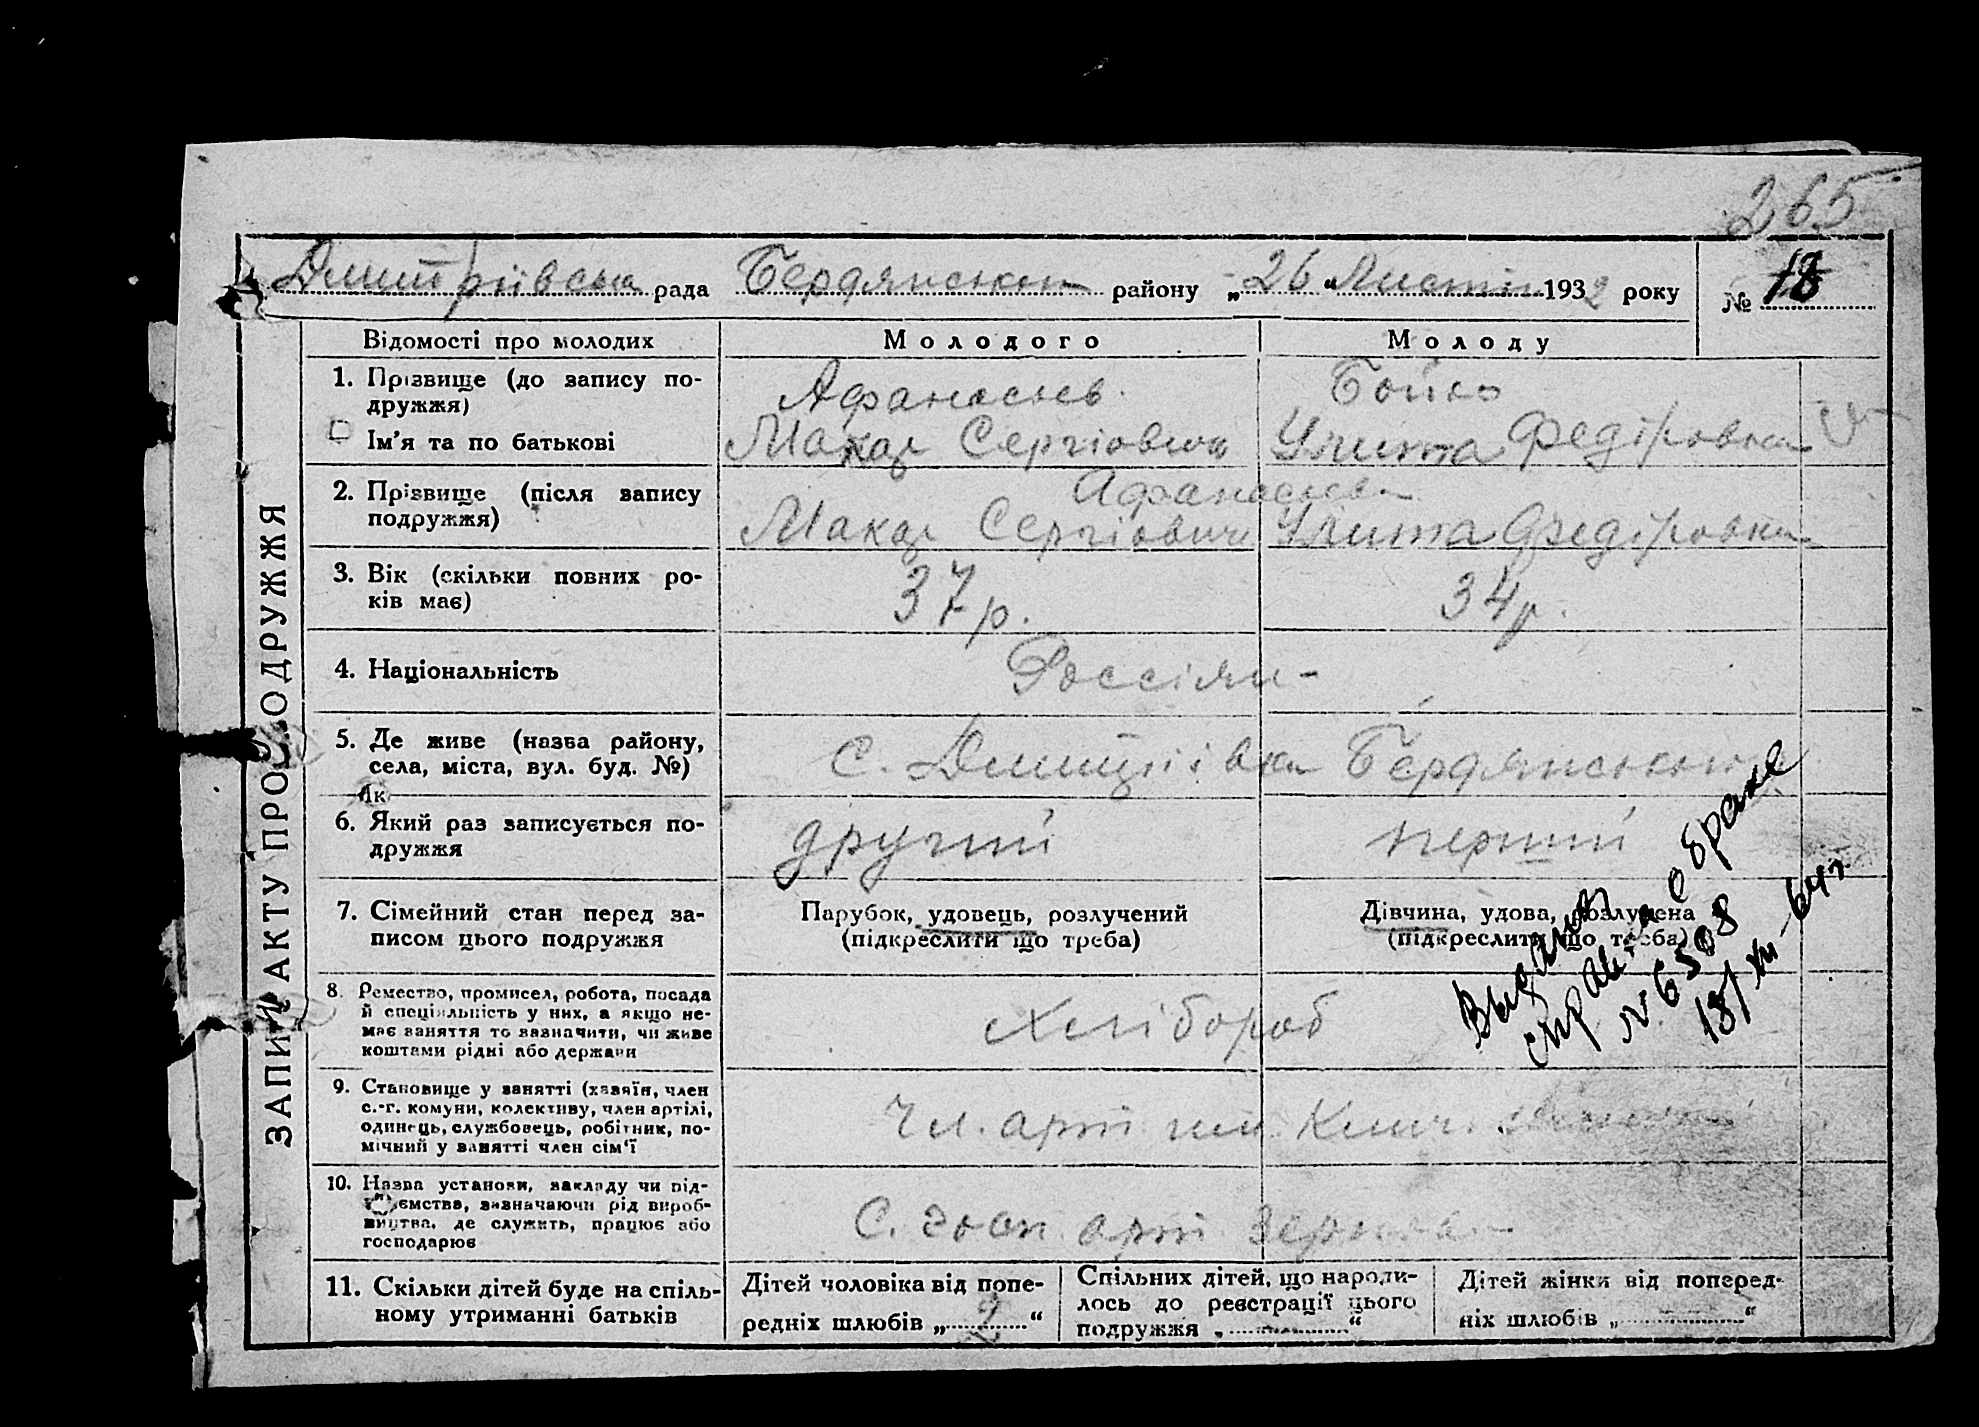 265
Дмитріївська рада Бердянського району „26“ Листоп 1932 року № 18
ЗАПИС АКТУ ПРО ОДРУЖЖЯ
Відомості про молодих
Молодого
Молоду
1. Прізвище (до запису по-
дружжя)
Ім'я та по батькові
Афанасьев
Макар Сергіович
Бойко
Улита Федіровна
2. Прізвище (після запису
подружжя)
Афанасьеви
Макар Сергіович
Улита Федіровна
3. Вік (скільки повних ро-
ків має)
37 р.
34 р.
4. Національність
Россіяни
5. Де живе (назва району,
села, міста, вул. буд. №)
с. Дмитріівка Бердянського
Як
6. Який раз записується по-
дружжя
другий
перший
7. Сімейний стан перед за-
писом цього подружжя
Парубок, удовець, розлучений
(підкреслити що треба)
Дівчина, удова, розлучена
(підкреслити що треба)
8. Ремество, промисел, робота, посада
й спеціяльність у них, а якщо не-
має заняття то зазначити, чи живе
коштами рідні або держави
Хлібороб
9. Становище у занятті (хазяїн, член
с.-г. комуни, колективу, член артілі,
одинець, службовець, робітник, по-
мічний у занятті член сім'ї
Чл. арт. им.
10. Назва установи, закладу чи під-
ємства, визначаючи рід вироб-
ництва, де служить, працює або
господарює
С. госп. арт. зернова
11. Скільки дітей буде на спіль-
ному утриманні батьків
Дітей чоловіка від попе-
редніх шлюбів „2“
Спільних дітей, що народи-
лось до реєстрації цього
подружжя „“
Дітей жінки від поперед-
ніх шлюбів „“
Выдана
справка о браке
№ 6508
18/ -64г